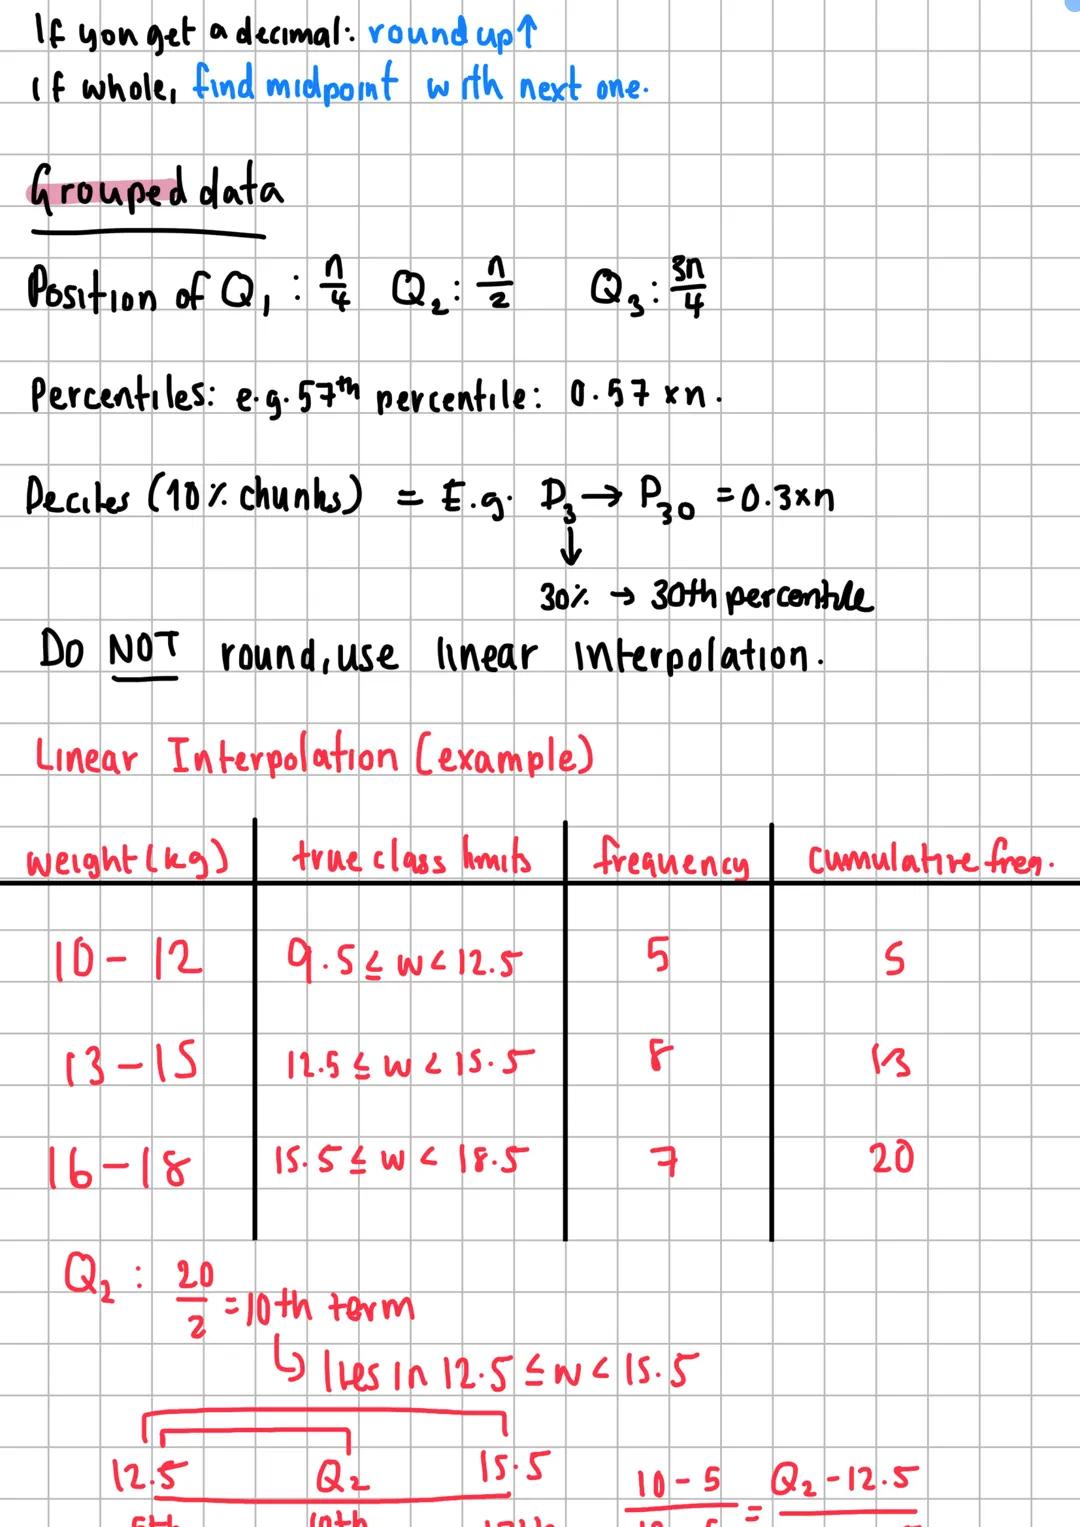 If you get a decimal: round up↑
if whole, find midpoint with next one.
Grouped data
Position of Q₁ : n/4 Q₂ : n/2 Q₃ : 3n/4
Percentiles: e.g. 57th percentile: 0.57 × n.
Deciles (10% chunks) = E.g. D₃ → P₃₀ = 0.3×n
↓
30% → 30th percentile
Do NOT round, use linear interpolation.
Linear Interpolation (example)
weight (kg) true class limits frequency cumulative freq.
10 - 12 9.5 ≤ w < 12.5 5 5
13 - 15 12.5 ≤ w < 15.5 8 13
16 - 18 15.5 ≤ w < 18.5 7 20
Q₂ : 20/2 = 10th term
↳ lies in 12.5 ≤ w < 15.5
12.5 Q₂ 15.5 10 - 5 = Q₂ - 12.5